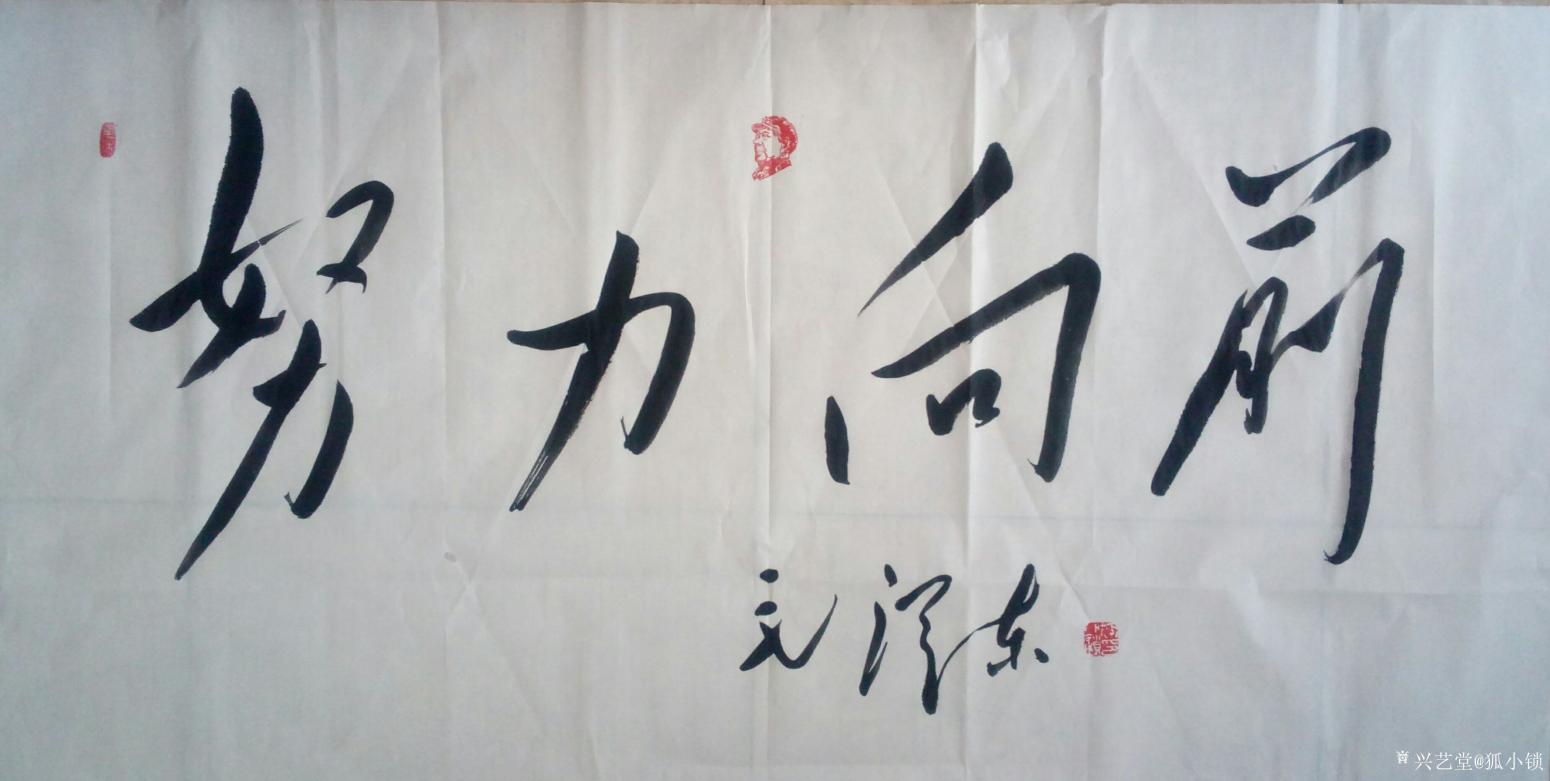 努力向前
毛泽东
兴艺堂@狐小锁